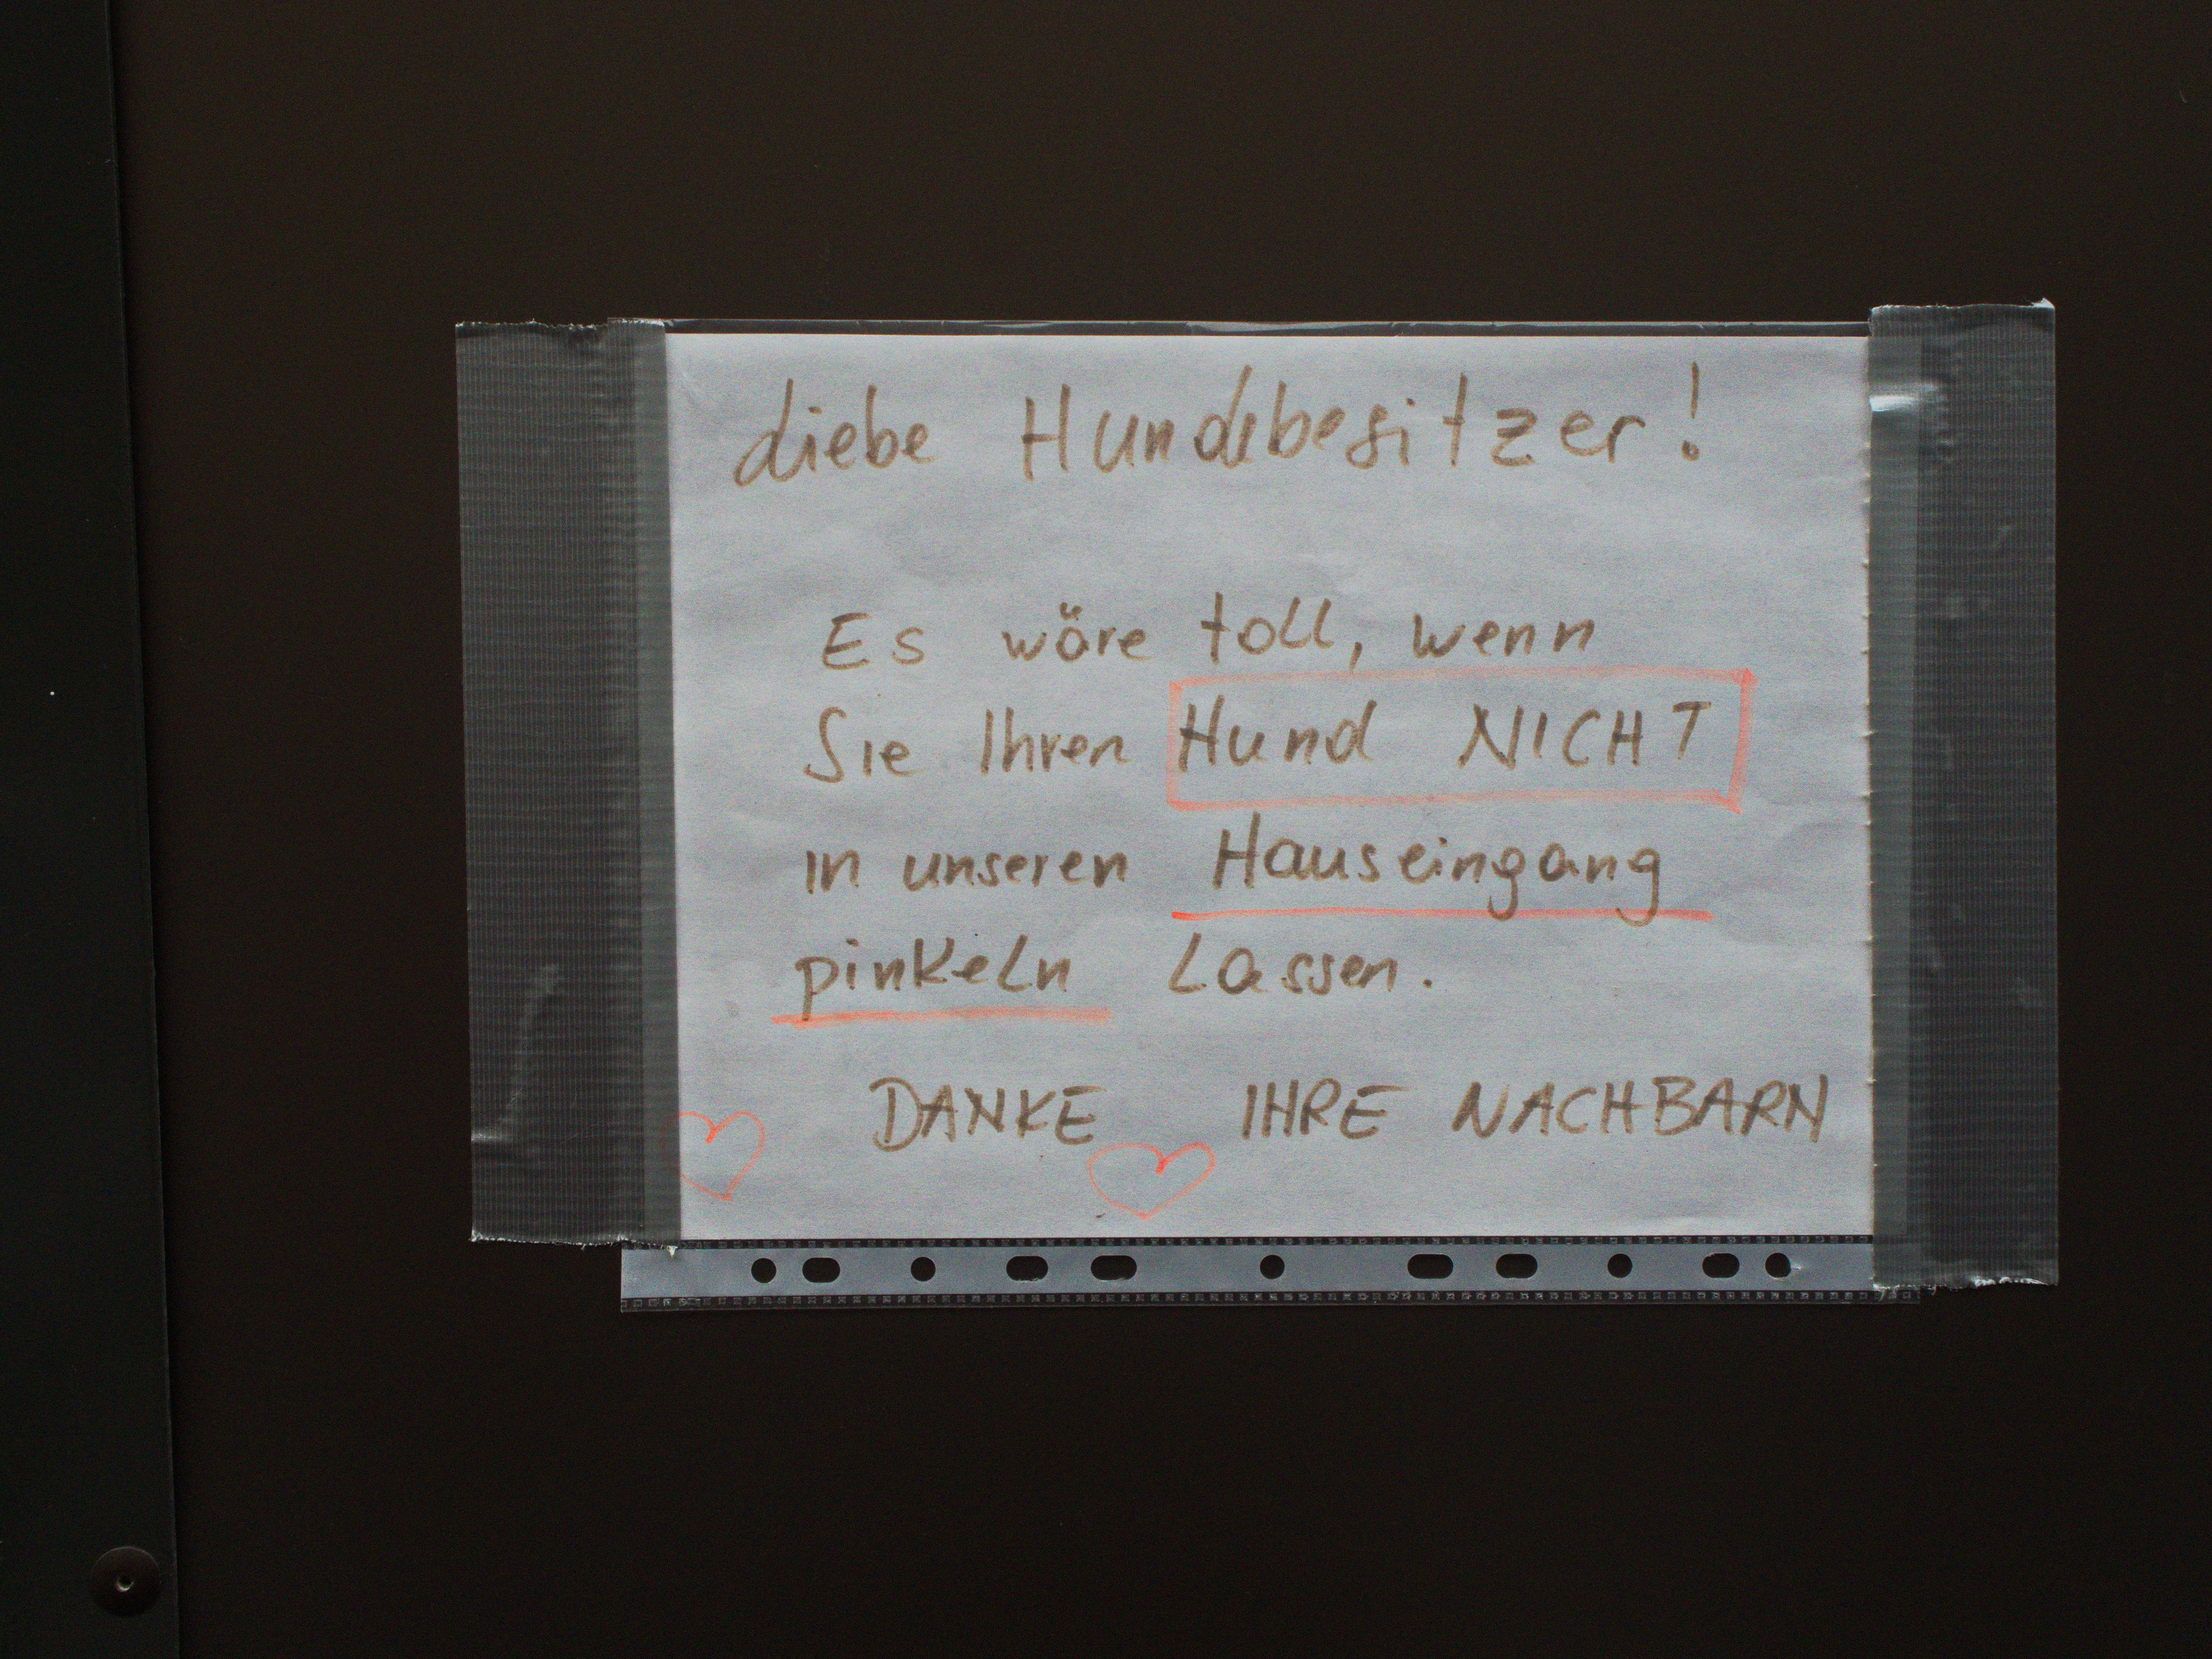 Liebe Hundebesitzer!
Es wäre toll, wenn
Sie Ihren Hund NICHT
in unseren Hauseingang
pinkeln lassen.
DANKE IHRE NACHBARN